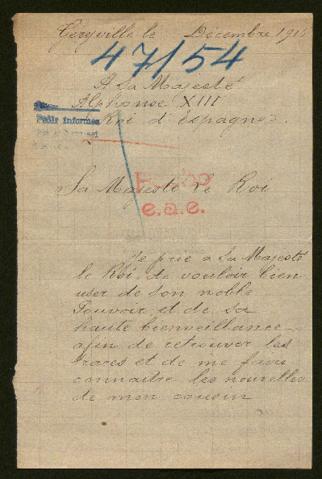 Geryville le Décembre 191
47/54
A Sa Majesté
Alphonse XIII
Roi d'espagne.
Pedir Informes
Sa Majesté le Roi
e.a.e.
Je prie a Sa Majesté
le Roi de vouloir bien
user de son noble
Pouvoir et de sa
haute bienveillance
afin de retrouver les
traces et de me faire
connaitre les nouvelles
de mon cousin